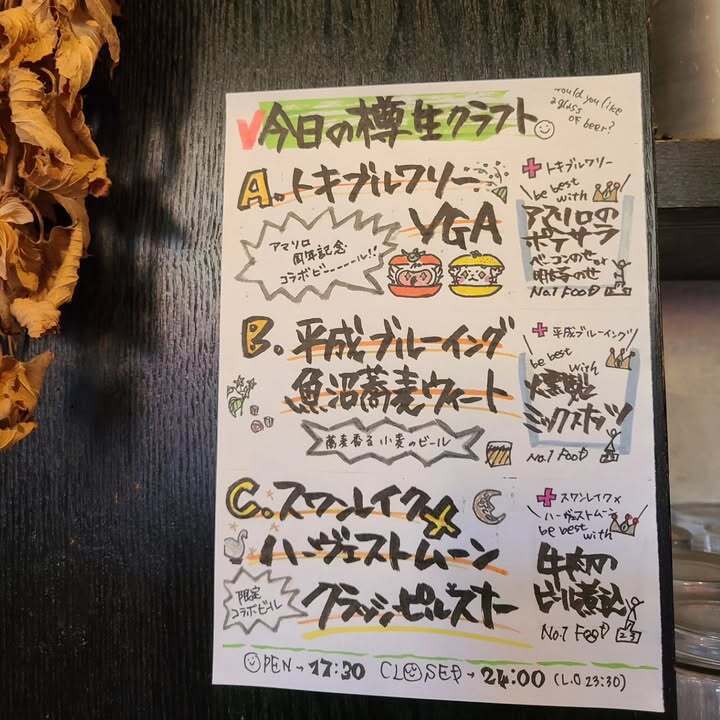 今日の樽生クラフト
would you like
a glass
of beer?
A. トキブルワリー
VGA
アマリロ
周年記念
コラボビーーーーール!!
+ トキブルワリー
be best
with
アマリロの
ポテサラ
ベーコンのせor
明太のせ
No.1 FOOD
B. 平成ブルーイング
魚沼蕎麦ウィート
蕎麦香る小麦のビール
+ 平成ブルーイング
be best
with
燻製
ミックスナッツ
No.1 FOOD
C. スワンレイク×
ハーヴェストムーン
クラッシュピルスナー
限定
コラボビール
+ スワンレイク×
ハーヴェストムーン
be best
with
牛肉の
ビール煮込
No.1 FOOD
OPEN→17:30 CLOSED→24:00 (L.O 23:30)